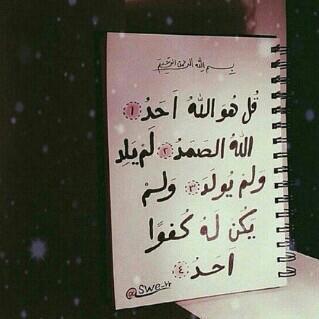 بسم الله الرحمن الرحيم
قُل هُوَ اللهُ أَحَدٌ ١
اللهُ الصَمَدُ ٢ لَمْ يَلِد
وَلَمْ يُولَدْ ٣ وَلَمْ
يَكُن لَهُ كُفُوًا
أَحَدٌ ٤
@swe_rr